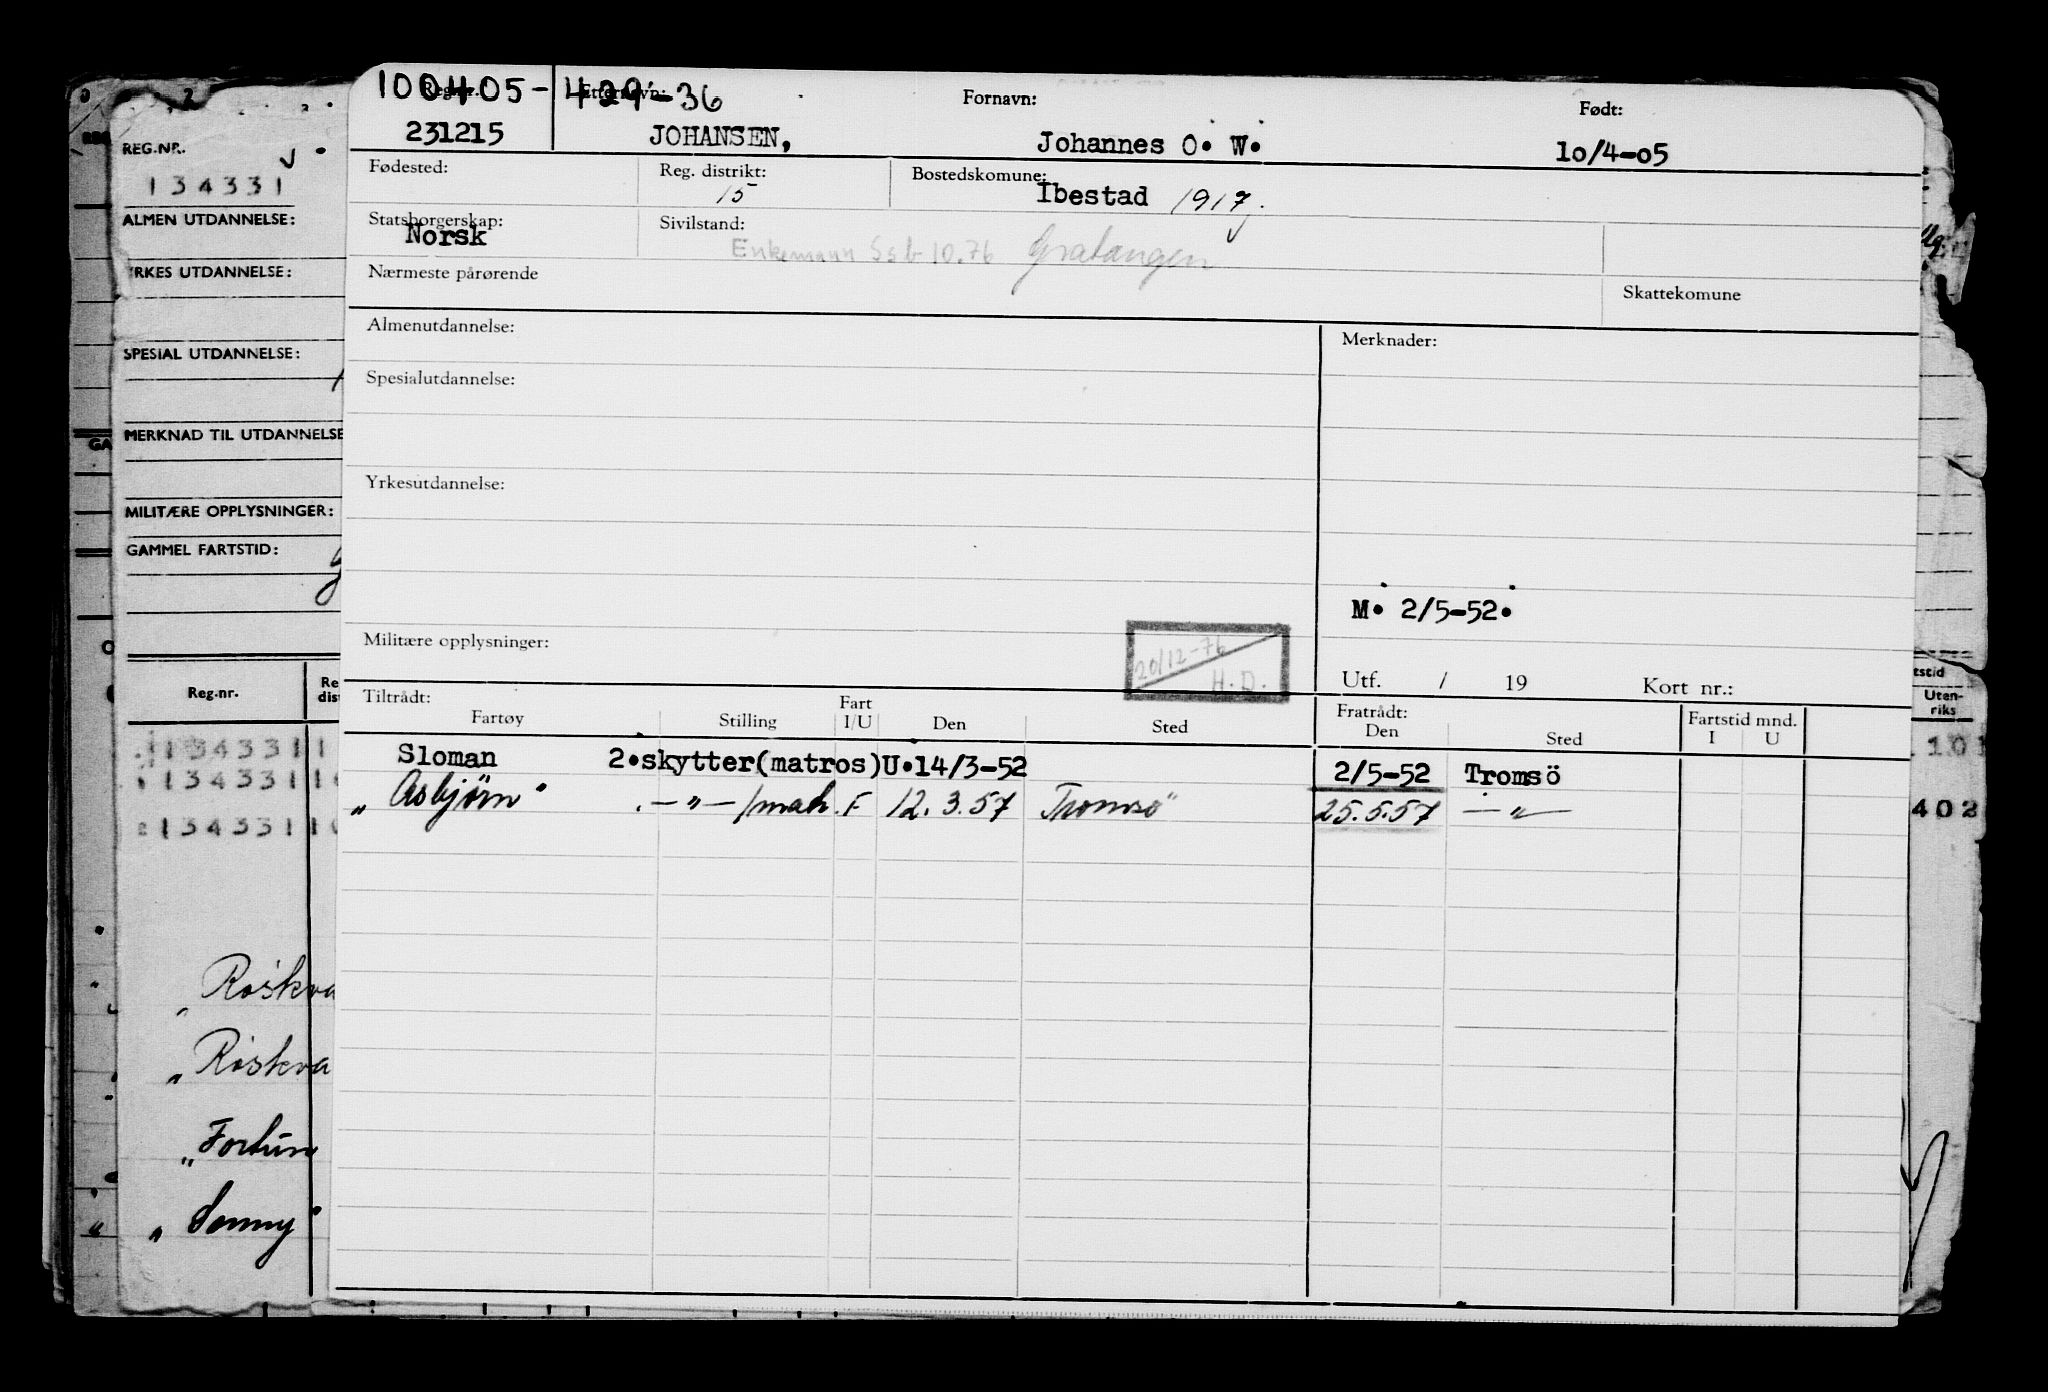 100405-
Reg.nr.:
Etternavn:
Fornavn:
Født:
231215
JOHANSEN,
Johannes O. W.
10/4-05
Fødested:
Reg. distrikt:
15
Bostedskomune:
Ibestad 1917.
Statsborgerskap:
Norsk
Sivilstand:
Enkemann Ssb 10.76 Gratangen
Nærmeste pårørende
Skattekomune
Almenutdannelse:
Merknader:
Spesialutdannelse:
Yrkesutdannelse:
M. 2/5-52.
Militære opplysninger:
20/12-76
H.D.
Utf. / 19 Kort nr.:
Tiltrådt:
Fartøy
Stilling
Fart
I/U
Den
Sted
Fratrådt:
Den
Sted
Fartstid mnd.
I
U
Sloman 2.skytter(matros)U.14/3-52 2/5-52 Tromsö
„ Asbjørn" —„—/matr. F 12.3.57 Tromsø" 25.5.57 —„—
REG.NR.
134331
ALMEN UTDANNELSE:
YRKES UTDANNELSE:
SPESIAL UTDANNELSE:
MERKNAD TIL UTDANNELSE
MILITÆRE OPPLYSNINGER:
GAMMEL FARTSTID:
GA
Reg.nr.
Re
dis
134331 1
134331 1
134331 1
„ Røskva
„ Røskva
„ Fortun
„ Sonny"
tstid
Uten-
riks
101
402